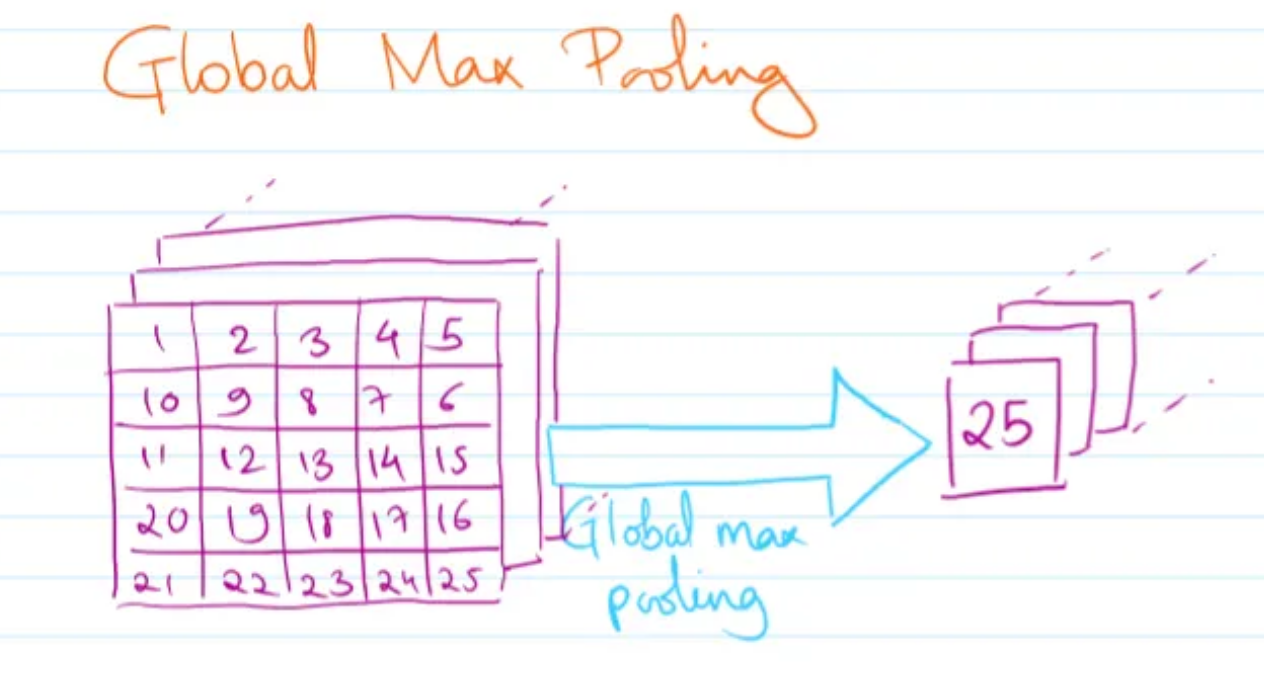 Global Max Pooling
1 2 3 4 5
10 9 8 7 6
11 12 13 14 15
20 19 18 17 16
21 22 23 24 25
25
Global max
pooling